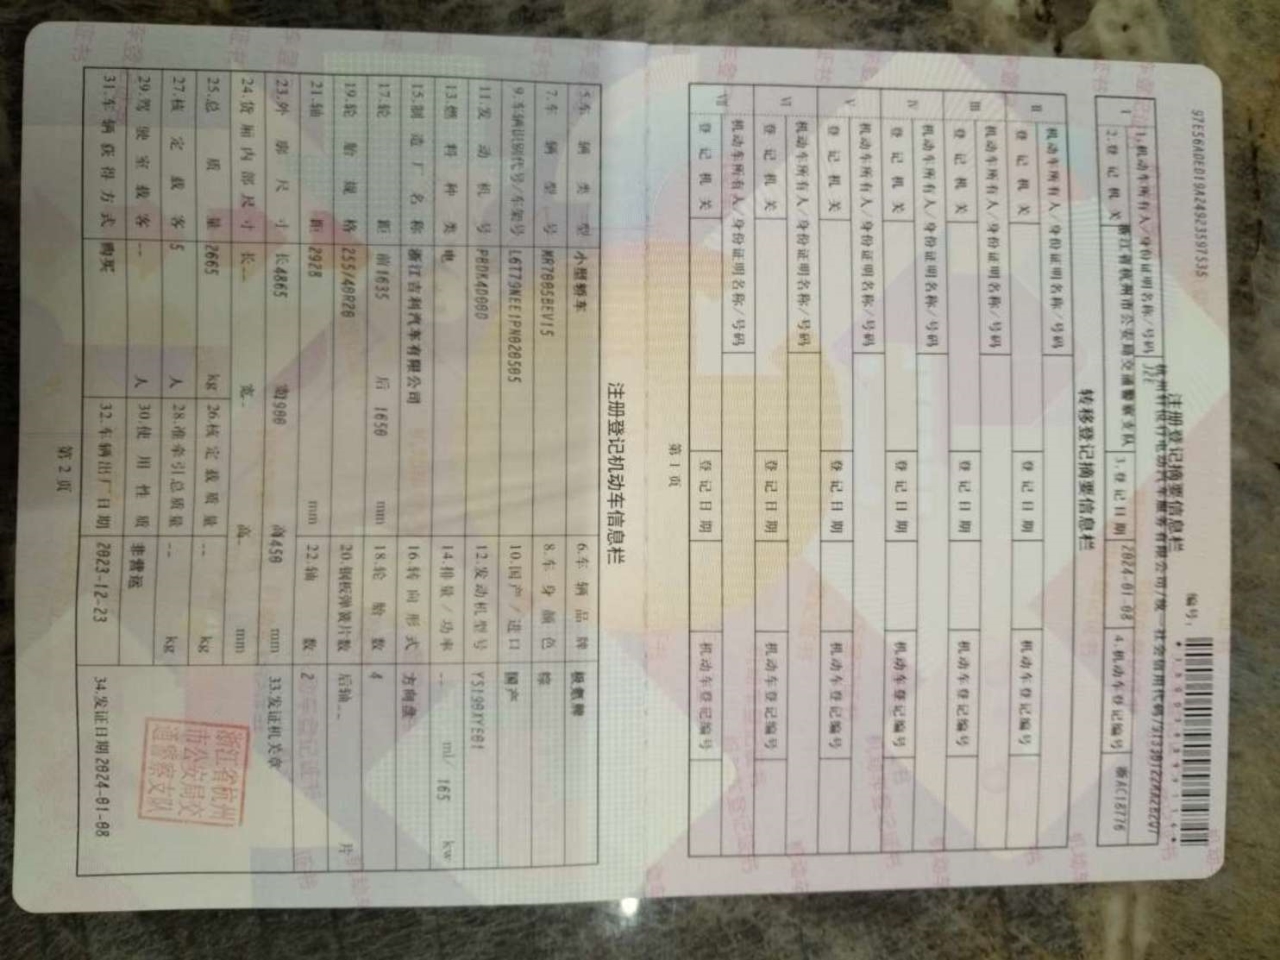 97E56ADED19A2492359753S
编号：
注册登记摘要信息栏
I 1.机动车所有人/身份证明名称/号码
2.登记机关 浙江省杭州市公安局交通警察支队 3.登记日期 2024-01-08 4.机动车登记编号 浙AC18776
转移登记摘要信息栏
II 机动车所有人/身份证明名称/号码
登记机关 登记日期 机动车登记编号
III 机动车所有人/身份证明名称/号码
登记机关 登记日期 机动车登记编号
IV 机动车所有人/身份证明名称/号码
登记机关 登记日期 机动车登记编号
V 机动车所有人/身份证明名称/号码
登记机关 登记日期 机动车登记编号
VI 机动车所有人/身份证明名称/号码
登记机关 登记日期 机动车登记编号
VII 机动车所有人/身份证明名称/号码
登记机关 登记日期 机动车登记编号
第 1 页
注册登记机动车信息栏
5.车辆类型 小型轿车 6.车辆品牌 极氪牌
7.车辆型号 MR7005BEV15 8.车身颜色 棕
9.车辆识别代号/车架号 L6T79NEE1PN020505 10.国产/进口 国产
11.发动机号 P8DK4D00D 12.发动机型号 YS190XYE01
13.燃料种类 电 14.排量/功率 -- ml/ 165 kw
15.制造厂名称 浙江吉利汽车有限公司 16.转向形式 方向盘
17.轮距 前1635 后 1650 mm 18.轮胎数 4
19.轮胎规格 255/40R20 20.钢板弹簧片数 后轴-- 片
21.轴距 2928 mm 22.轴数 2
23.外廓尺寸 长4865 宽1900 高1450 mm 33.发证机关章
24.货厢内部尺寸 长-- 宽-- 高-- mm
25.总质量 2665 kg 26.核定载质量 -- kg
27.核定载客 5 人 28.准牵引总质量 -- kg
29.驾驶室载客 -- 人 30.使用性质 非营运
31.车辆获得方式 购买 32.车辆出厂日期 2023-12-23 34.发证日期 2024-01-08
浙江省杭州
市公安局交
通警察支队
第 2 页